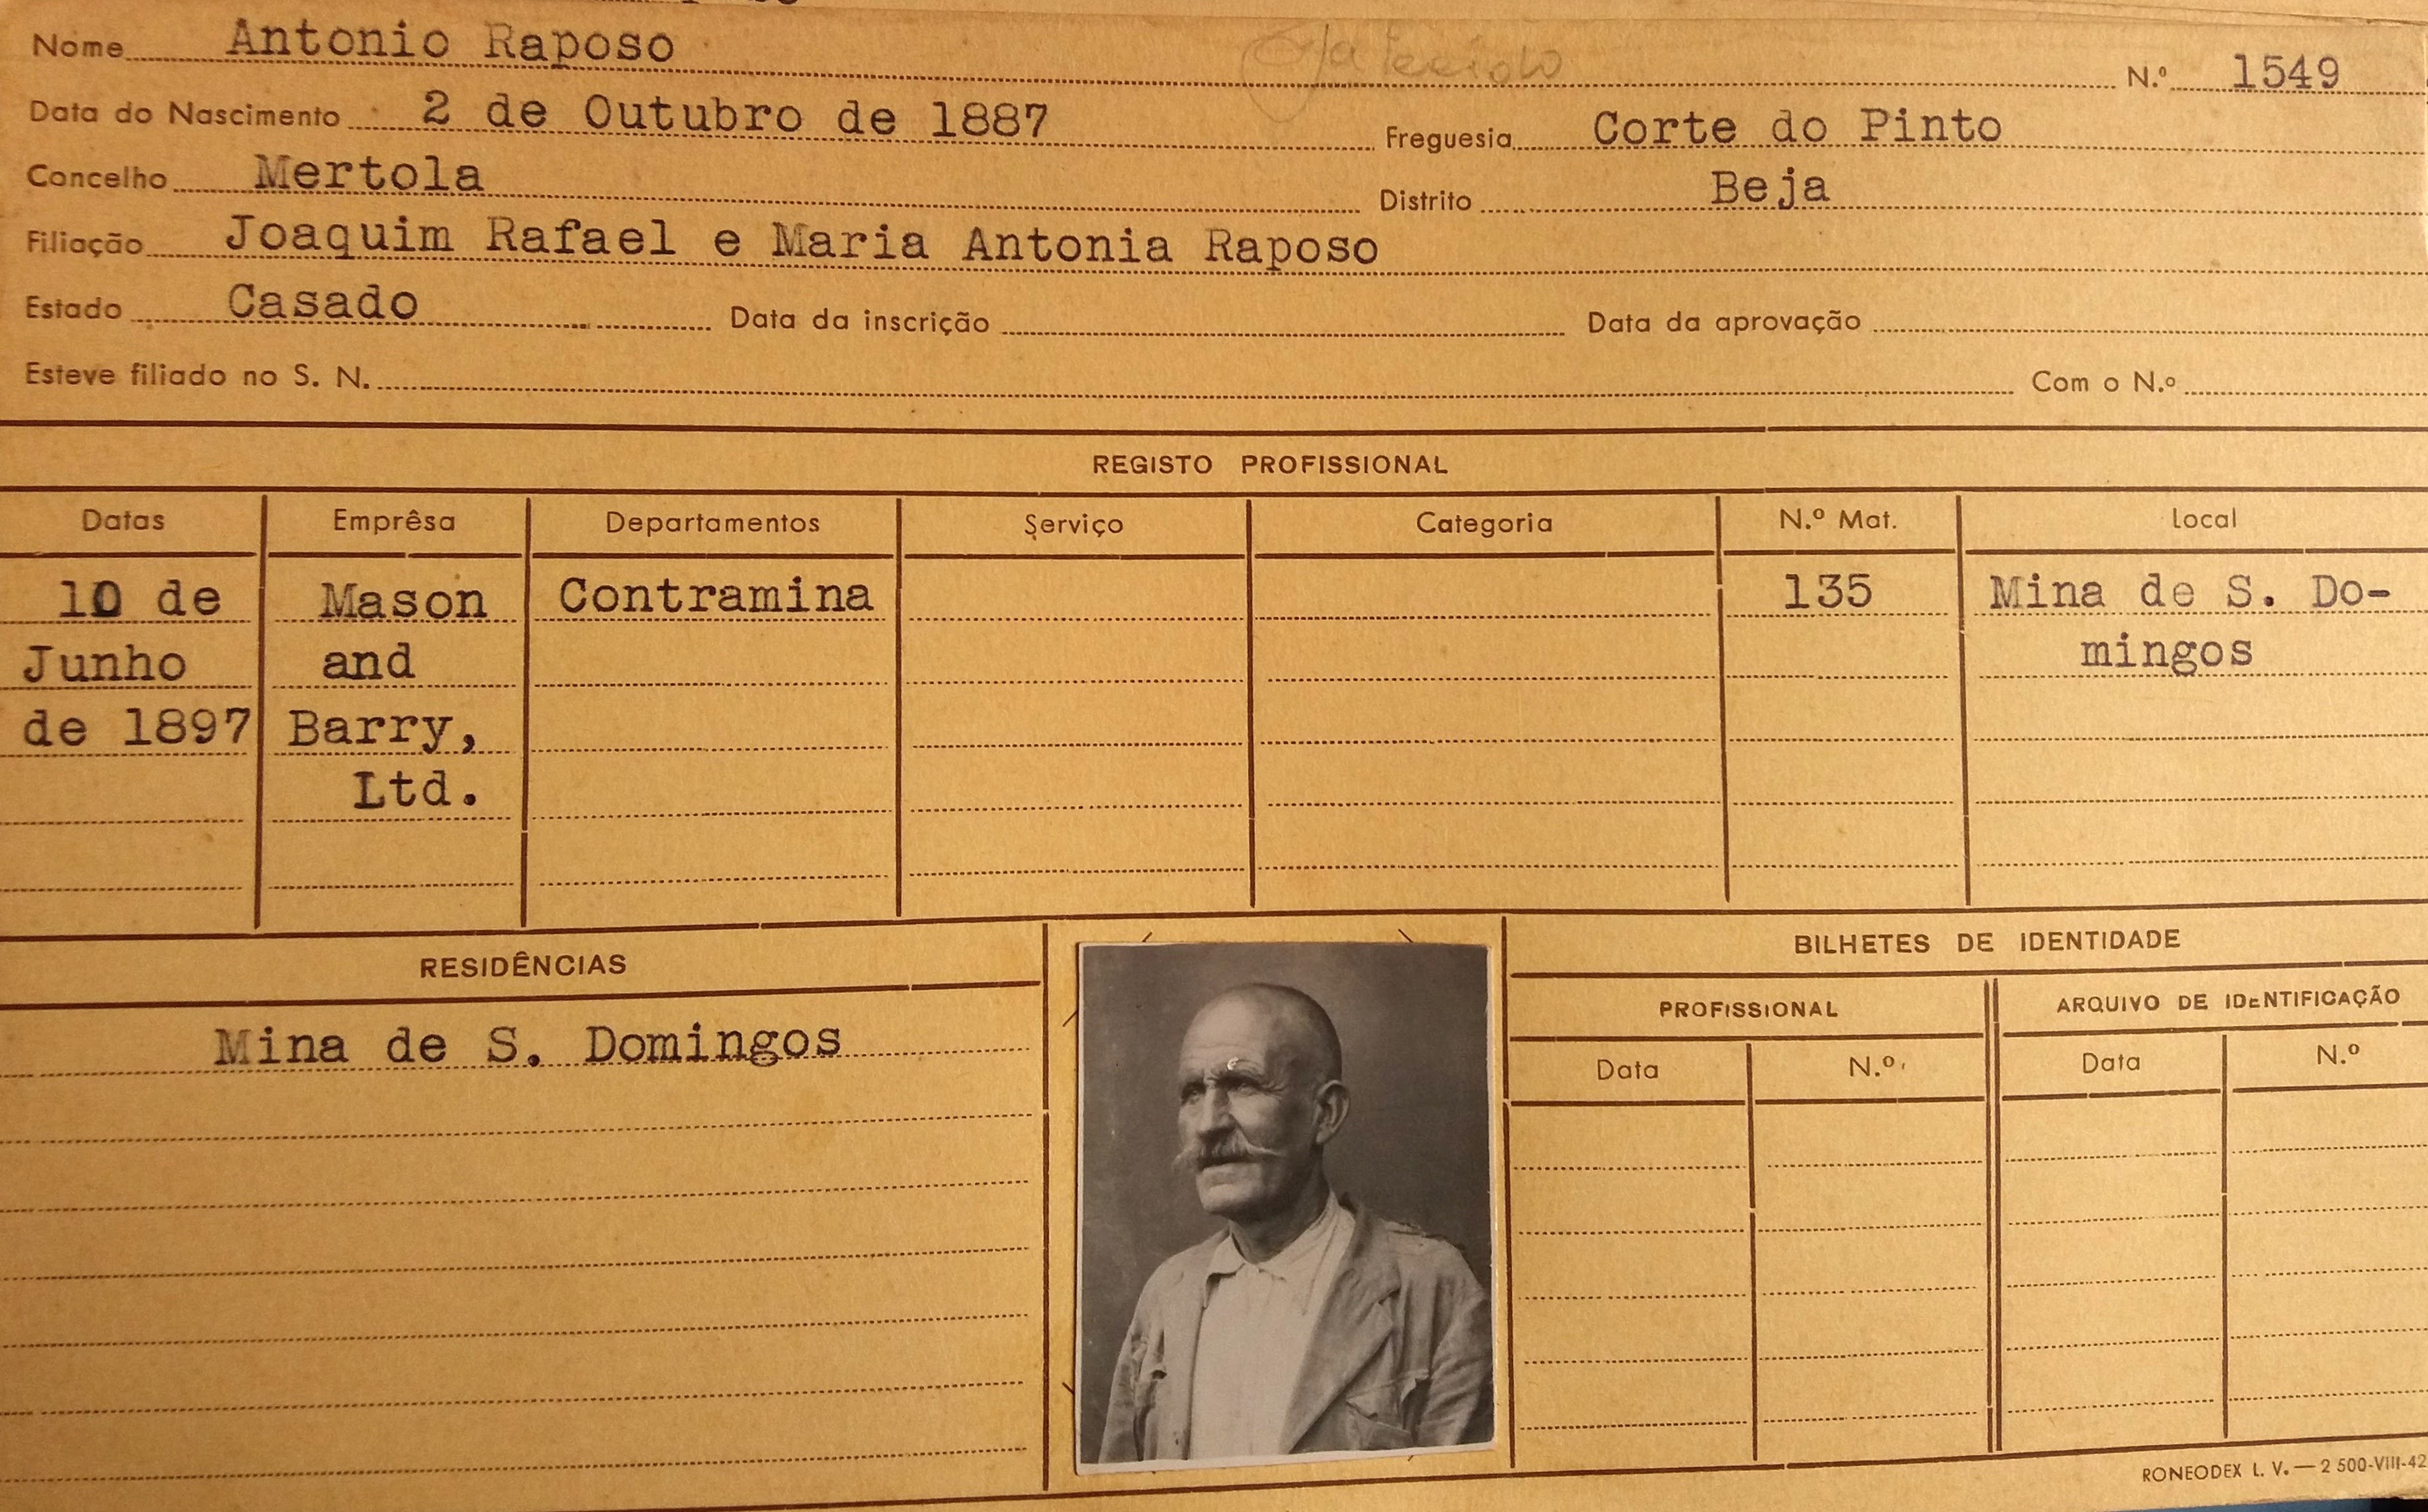 Nome Antonio Raposo Falecido N.º 1549
Data do Nascimento 2 de Outubro de 1887 Freguesia Corte do Pinto
Concelho Mertola Distrito Beja
Filiação Joaquim Rafael e Maria Antonia Raposo
Estado Casado Data da inscrição Data da aprovação
Esteve filiado no S. N. Com o N.º
REGISTO PROFISSIONAL
Datas Emprêsa Departamentos Serviço Categoria N.º Mat. Local
10 de Mason Contramina 135 Mina de S. Do-
Junho and mingos
de 1897 Barry,
Ltd.
RESIDÊNCIAS
Mina de S. Domingos
BILHETES DE IDENTIDADE
PROFISSIONAL ARQUIVO DE IDENTIFICAÇÃO
Data N.º Data N.º
RONEODEX L. V. — 2 500-VIII-42